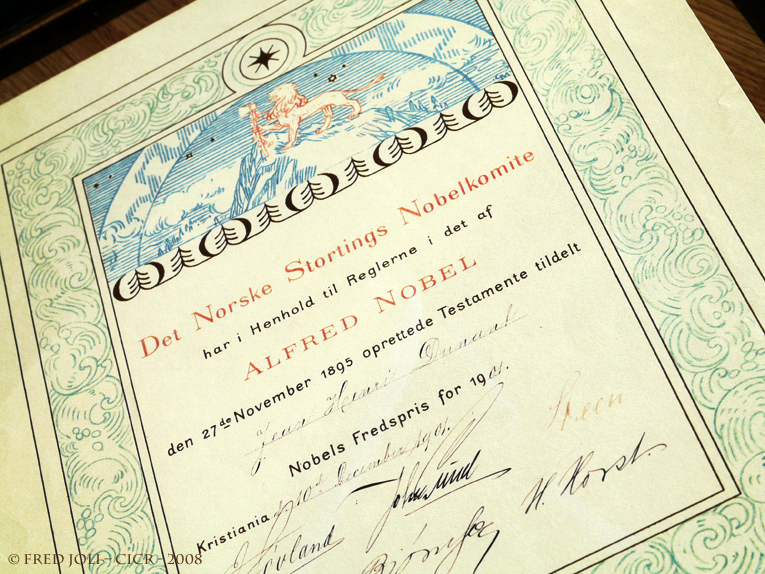 Det Norske Stortings Nobelkomite
har i Henhold til Reglerne i det af
ALFRED NOBEL
den 27de November 1895 oprettede Testamente tildelt
Jean Henri Dunant
Nobels Fredspris for 1901.
Kristiania d. 10de December 1901.
Steen
John Lund
H. Horst.
Løvland
Bjørnson
© FRED JOLI - CICR - 2008